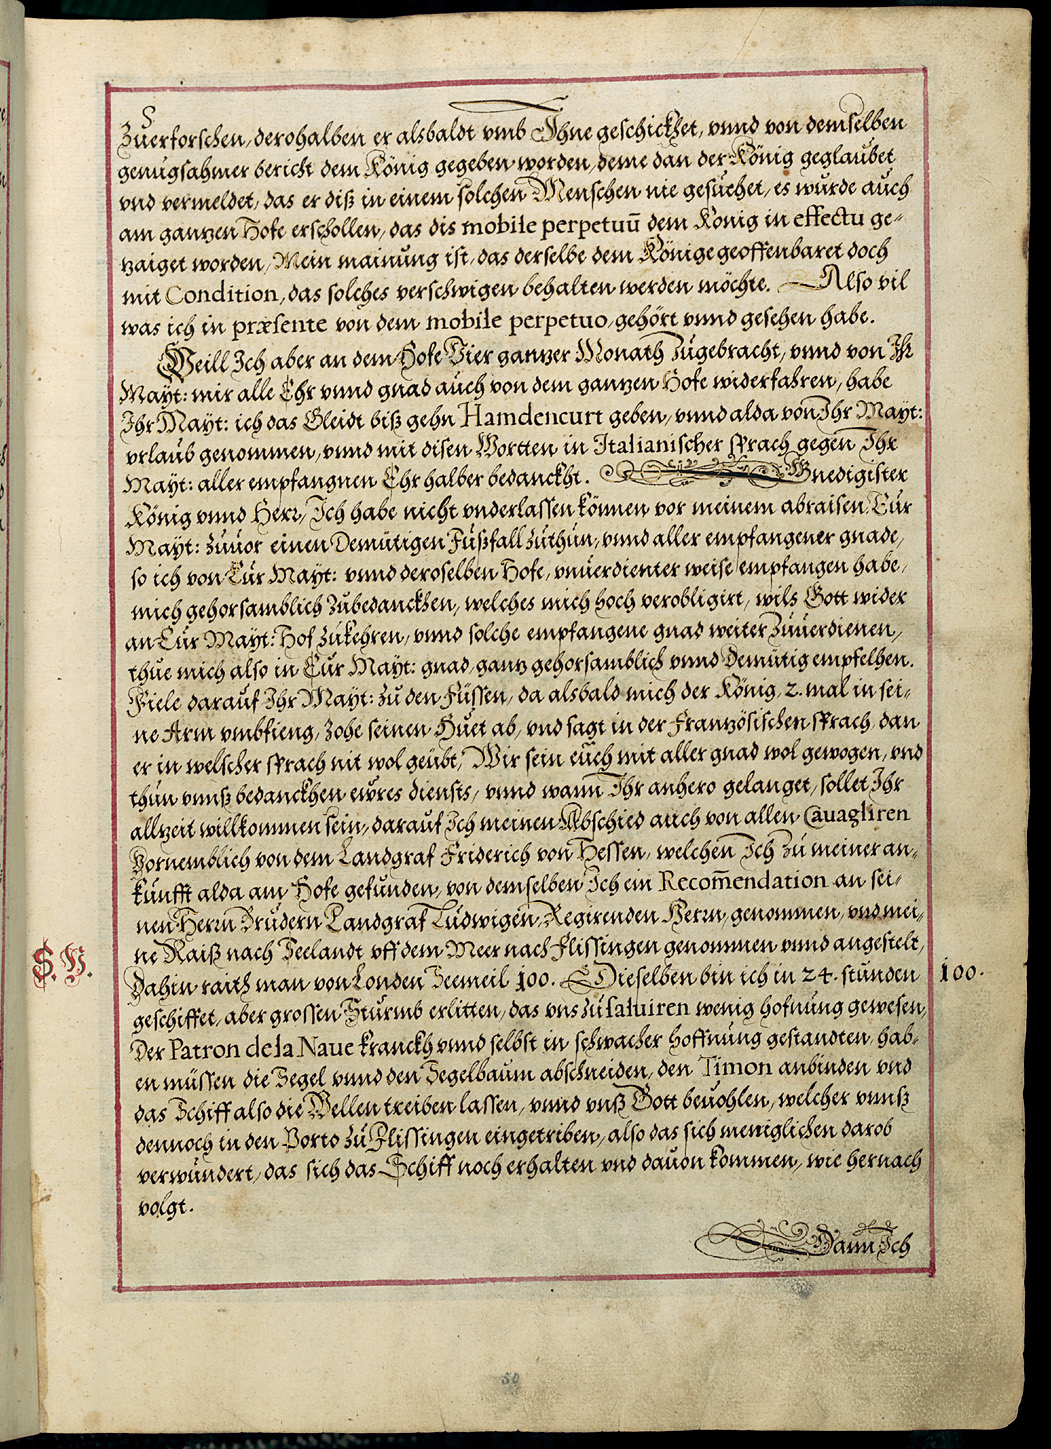 Zuerforschen, derohalben er alsbaldt vmb Ihne geschickhet, vnnd von demselben
genugsahmer bericht dem König gegeben worden, deme dan der König geglaubet
vnd vermeldet, das er diß in einem solchen Menschen nie gesuchet, es wurde auch
am ganzen Hofe erschollen, das dis mobile perpetuū dem König in effectu ge-
zaiget worden, Mein mainung ist, das derselbe dem Könige geoffenbaret doch
mit Condition, das solches verschwigen behalten werden möchte. Also vil
was ich in præsente von dem mobile perpetuo, gehört vnnd gesehen habe.
Weill Ich aber an dem Hofe Vier ganzer Monath Zugebracht, vnnd von Ihr
Mayt: mir alle Ehr vnnd gnad auch von dem ganzen Hofe widerfahren, habe
Ihr Mayt: ich das Gleidt biß gehn Hamdencurt geben, vnnd alda von Ihr Mayt:
vrlaub genommen, vnnd mit disen Wortten in Italianischer sprach gegen Ihr
Mayt: aller empfangnen Ehr halber bedanckht. Gnedigister
König vnnd Herr, Ich habe nicht vnderlassen können vor meinem abraisen, Eür
Mayt: zuuor einen Demütigen Füßfall zuthun, vnnd aller empfangener gnade,
so ich von Eür Mayt: vnnd deroselben Hofe, vnuerdienter weise empfangen habe,
mich gehorsamblich Zubedanckhen, welches mich hoch verobligirt, wils Gott wider
an Eür Mayt: Hof zukehren, vnnd solche empfangene gnad weiter Zuuerdienen,
thue mich also in Eür Mayt: gnad, ganz gehorsamblich vnnd Demütig empfelhen.
Fiele darauf Ihr Mayt: zu den Füssen, da alsbald mich der König, 2. mal in sei-
ne Arm vmbfieng, Zohe seinen Huet ab, vnd sagt in der Französischen sprach, dan
er in welscher sprach nit wol geübt, Wir sein euch mit aller gnad wol gewogen, vnd
thun vnnß bedanckhen ewres diensts, vnnd wann Ihr anhero gelanget, sollet Ihr
allzeit willkommen sein, darauf Ich meinen Abschied auch von allen Cauagliren
Vornemblich von dem Landgraf Friderich von Hessen, welchen Ich Zu meiner an-
kunfft alda am Hofe gefunden, von demselben Ich ein Recom̄endation an sei-
nen Herrn Brudern Landgraf Ludwigen, Regirenden Herrn, genommen, vnd mei-
ne Raiß nach Seelandt vff dem Meer nach Flissingen genommen vnnd angestelt,
S. N. Dahin raith man von Londen Seemeil 100. Dieselben bin ich in 24. stunden 100.
geschiffet, aber grossen Sturmb erlitten, das vns zu saluiren wenig hofnung gewesen,
Der Patron de la Naue kranckh vnnd selbst in schwacher hoffnung gestandten, hab-
en müssen die Segel vnnd den Segelbaum abschneiden, den Timon anbinden vnd
das Schiff also die Wellen treiben lassen, vnnd vnß Gott beuohlen, welcher vnnß
dennoch in den Porto zu Flissingen eingetriben, also das sich meniglichen darob
verwundert, das sich das Schiff noch erhalten vnd dauon kommen, wie hernach
volgt.
Dann Ich
50